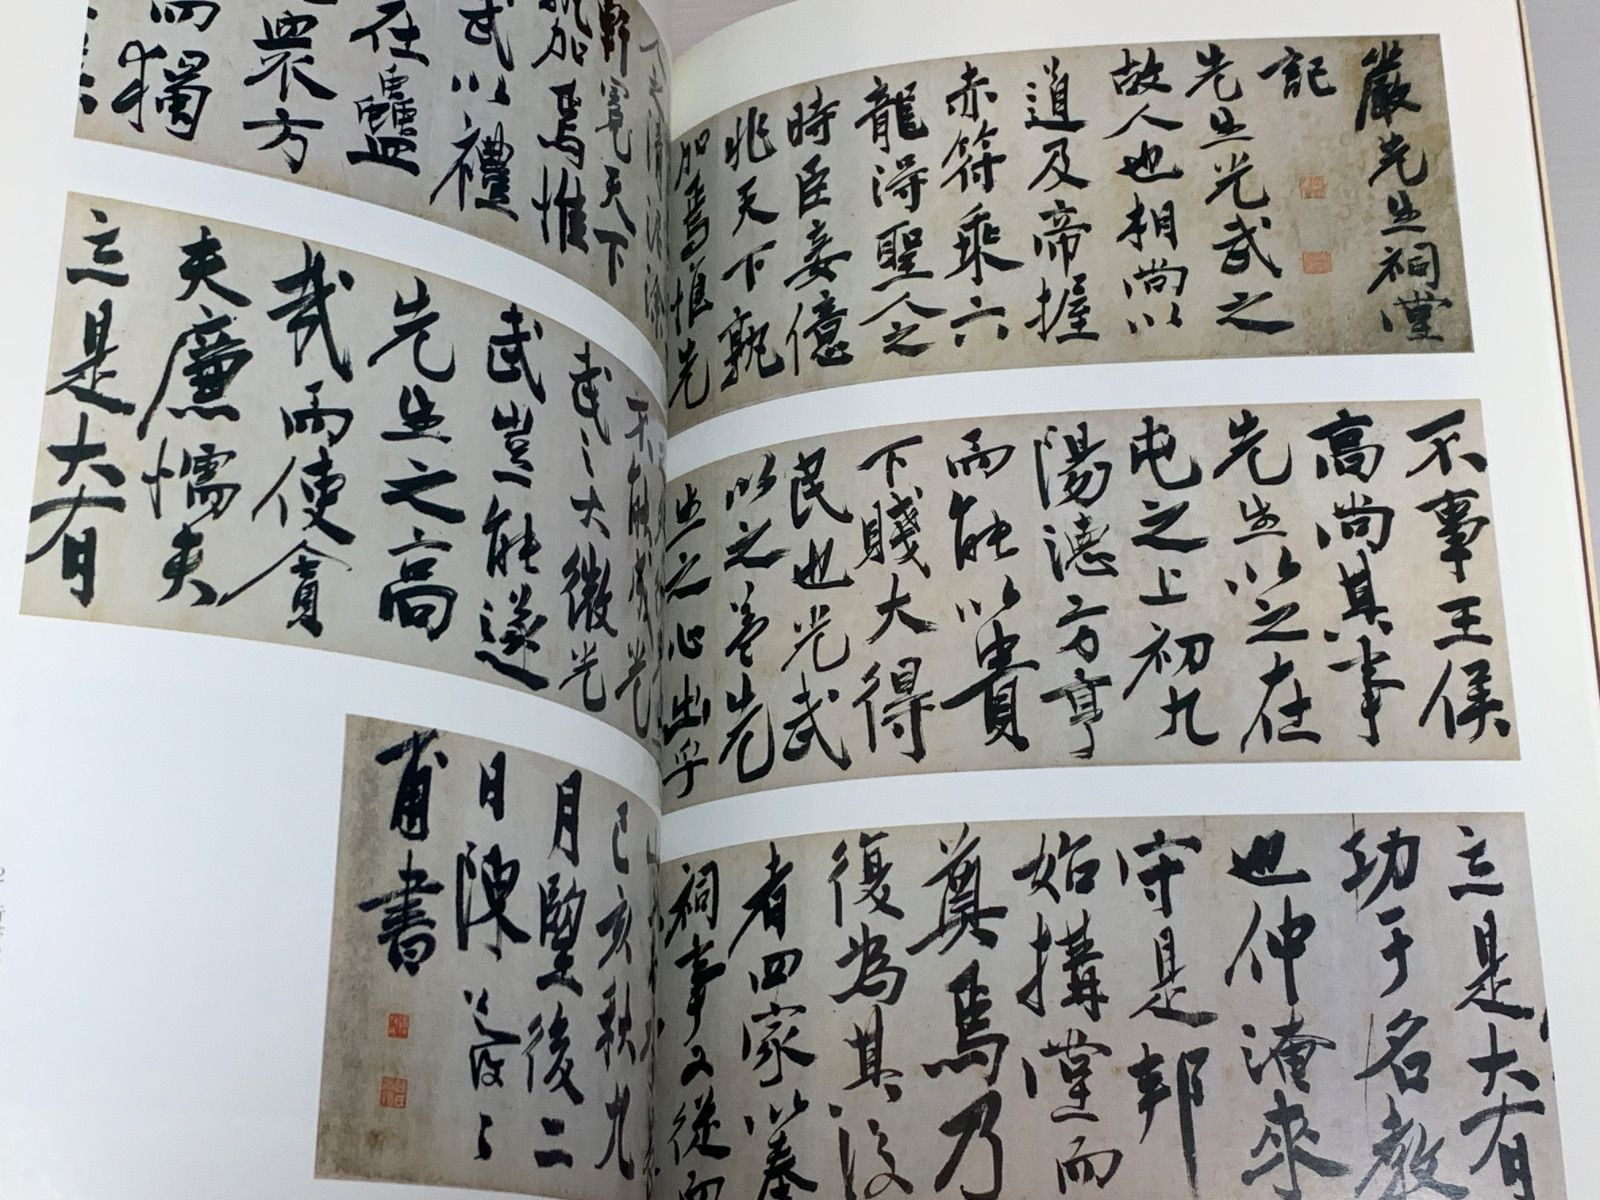 嚴先生祠堂
記
先生光武之
故人也相尚以
道及帝握
赤符乘六
龍得聖人之
時臣妾億
兆天下孰
加焉惟先
人之清泥塗
軒冕天下
孰加焉惟
武以禮
在蠱
衆方
而獨
不事王侯
高尚其事
先生以之在
屯之上初九
陽德方亨
而能以貴
下賤大得
民也光武
以之蓋先
生之心出乎
不能成光
武之大微光
武豈能遂
先生之高
哉而使貪
夫廉懦夫
立是大有
立是大有
功于名教
也仲淹來
守是邦
始搆堂而
奠焉乃
復為其後
者四家以奉
祠事又從而
己亥秋九
月既望後二
日陳道復
甫書